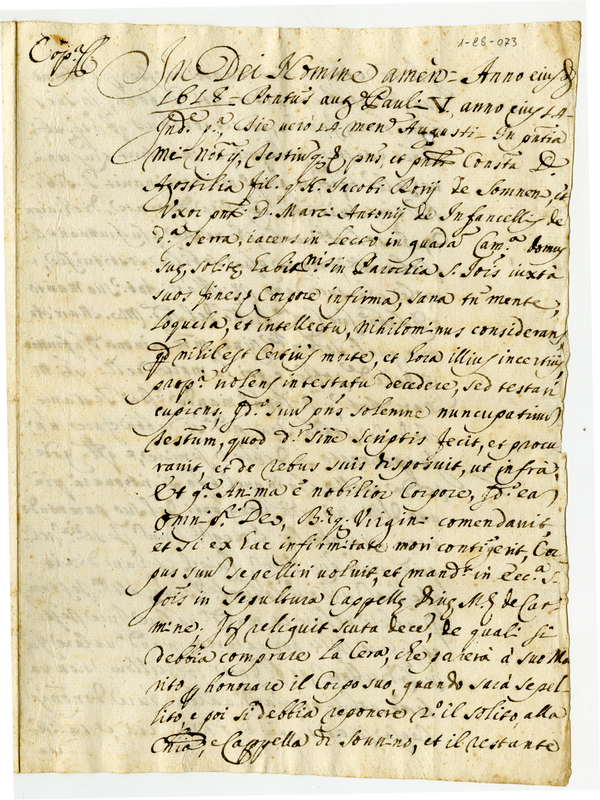 1-88-073
Cop.ª
In Dei Nomine amen= Anno eiusd
1618= Pontus auz Paul= V. anno eius 14=
Ind.e p.ª, Die vero 14 mens Augusti= In pntia
mei Notij, Testiumq; pns, et pnte Consta D.
Agostilia fil. q K. Jacobi Rorij de Somnen, et
Uxor pnt D. Marci Antonij de Infancellis de
d.ª Terra, iacens in Lecto in quada Cam.ª domus
suę solitę habitnis in Parochia S. Jois iuxta
suos fines, Corpore infirma, sana tn mente,
loquela, et intellectu, nihilominus considerans
qd nihil est Certius morte, et hora illius incertius,
prop.ª volens intestatu decedere, sed testari
cupiens, Id.o suu pns solemne nuncupativu
Testum, quod d.r sine scriptis fecit, et procu
ravit, et de rebus suis disposuit, ut infra,
Et q.ª Anima è nobilior Corpore, Id.o ea
omnip.ti Deo, B.ęq; Virgini comendavit
et si ex hac infirmitate mori contigerit, Cor
pus suu sepelliri voluit, et mand.t in ecc.ª S.
Jois in sepultura Cappellę Divę M.ę de Car
mine. Itē reliquit scuta decē, de quali si
debbia comprare la Cera, che parerà à suo Ma
rito p honorare il Corpo suo, quando sarà sepel
lito, e poi si debbia reponere r.o il solito alla
Chia, e Cappella di Sonnino, et il restante